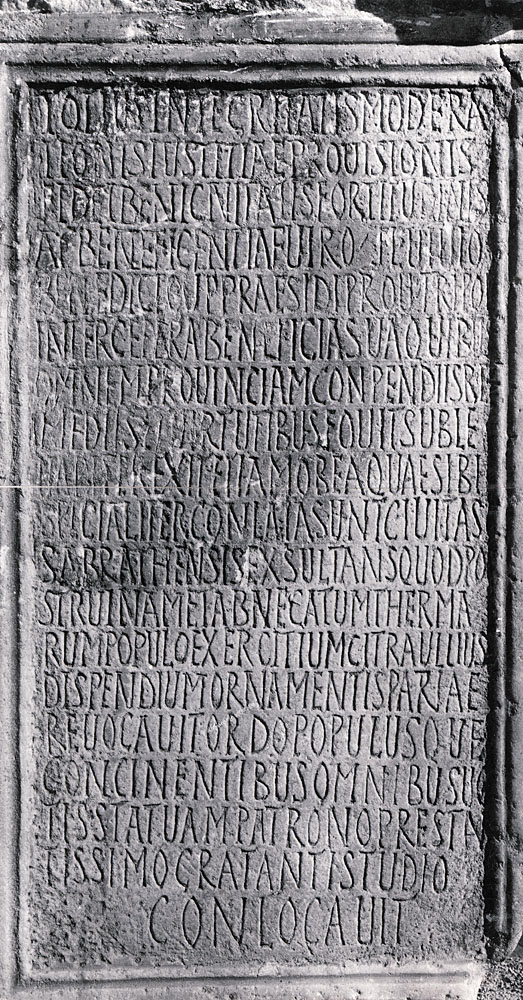 TOTIUS INTEGRITATIS MODERA
TIONIS IUSTITIAE PROUISIONIS
FIDEI BENIGNITATIS FORTITUDINIS
AC BENEFICENTIAE UIRO FL UIUIO
BENEDICTO UP PRAESIDI PROU TRIPO
INTER CETERA BENEFICIA SUA QUIBUS
OMNEM PROUINCIAM CONPENDIIS RE
MEDIIS UIRTUTIBUS FOUIT SUBLE
UAUIT EREXIT ETIAM OB EA QUAE SIBI
SPECIALITER CONLATA SUNT CIUITAS
SABRATHENSIS EXSULTANS QUOD PO
ST RUINAM ET ABNEGATUM THERMA
RUM POPULO EXERCITIUM CITRA ULLIUS
DISPENDIUM ORNAMENTIS PATRIAE
REUOCAUIT ORDO POPULUSQUE
CONCINENTIBUS OMNIBUS UO
TIS STATUAM PATRONO PRESTA
TISSIMO GRATANTI STUDIO
CONLOCAUIT